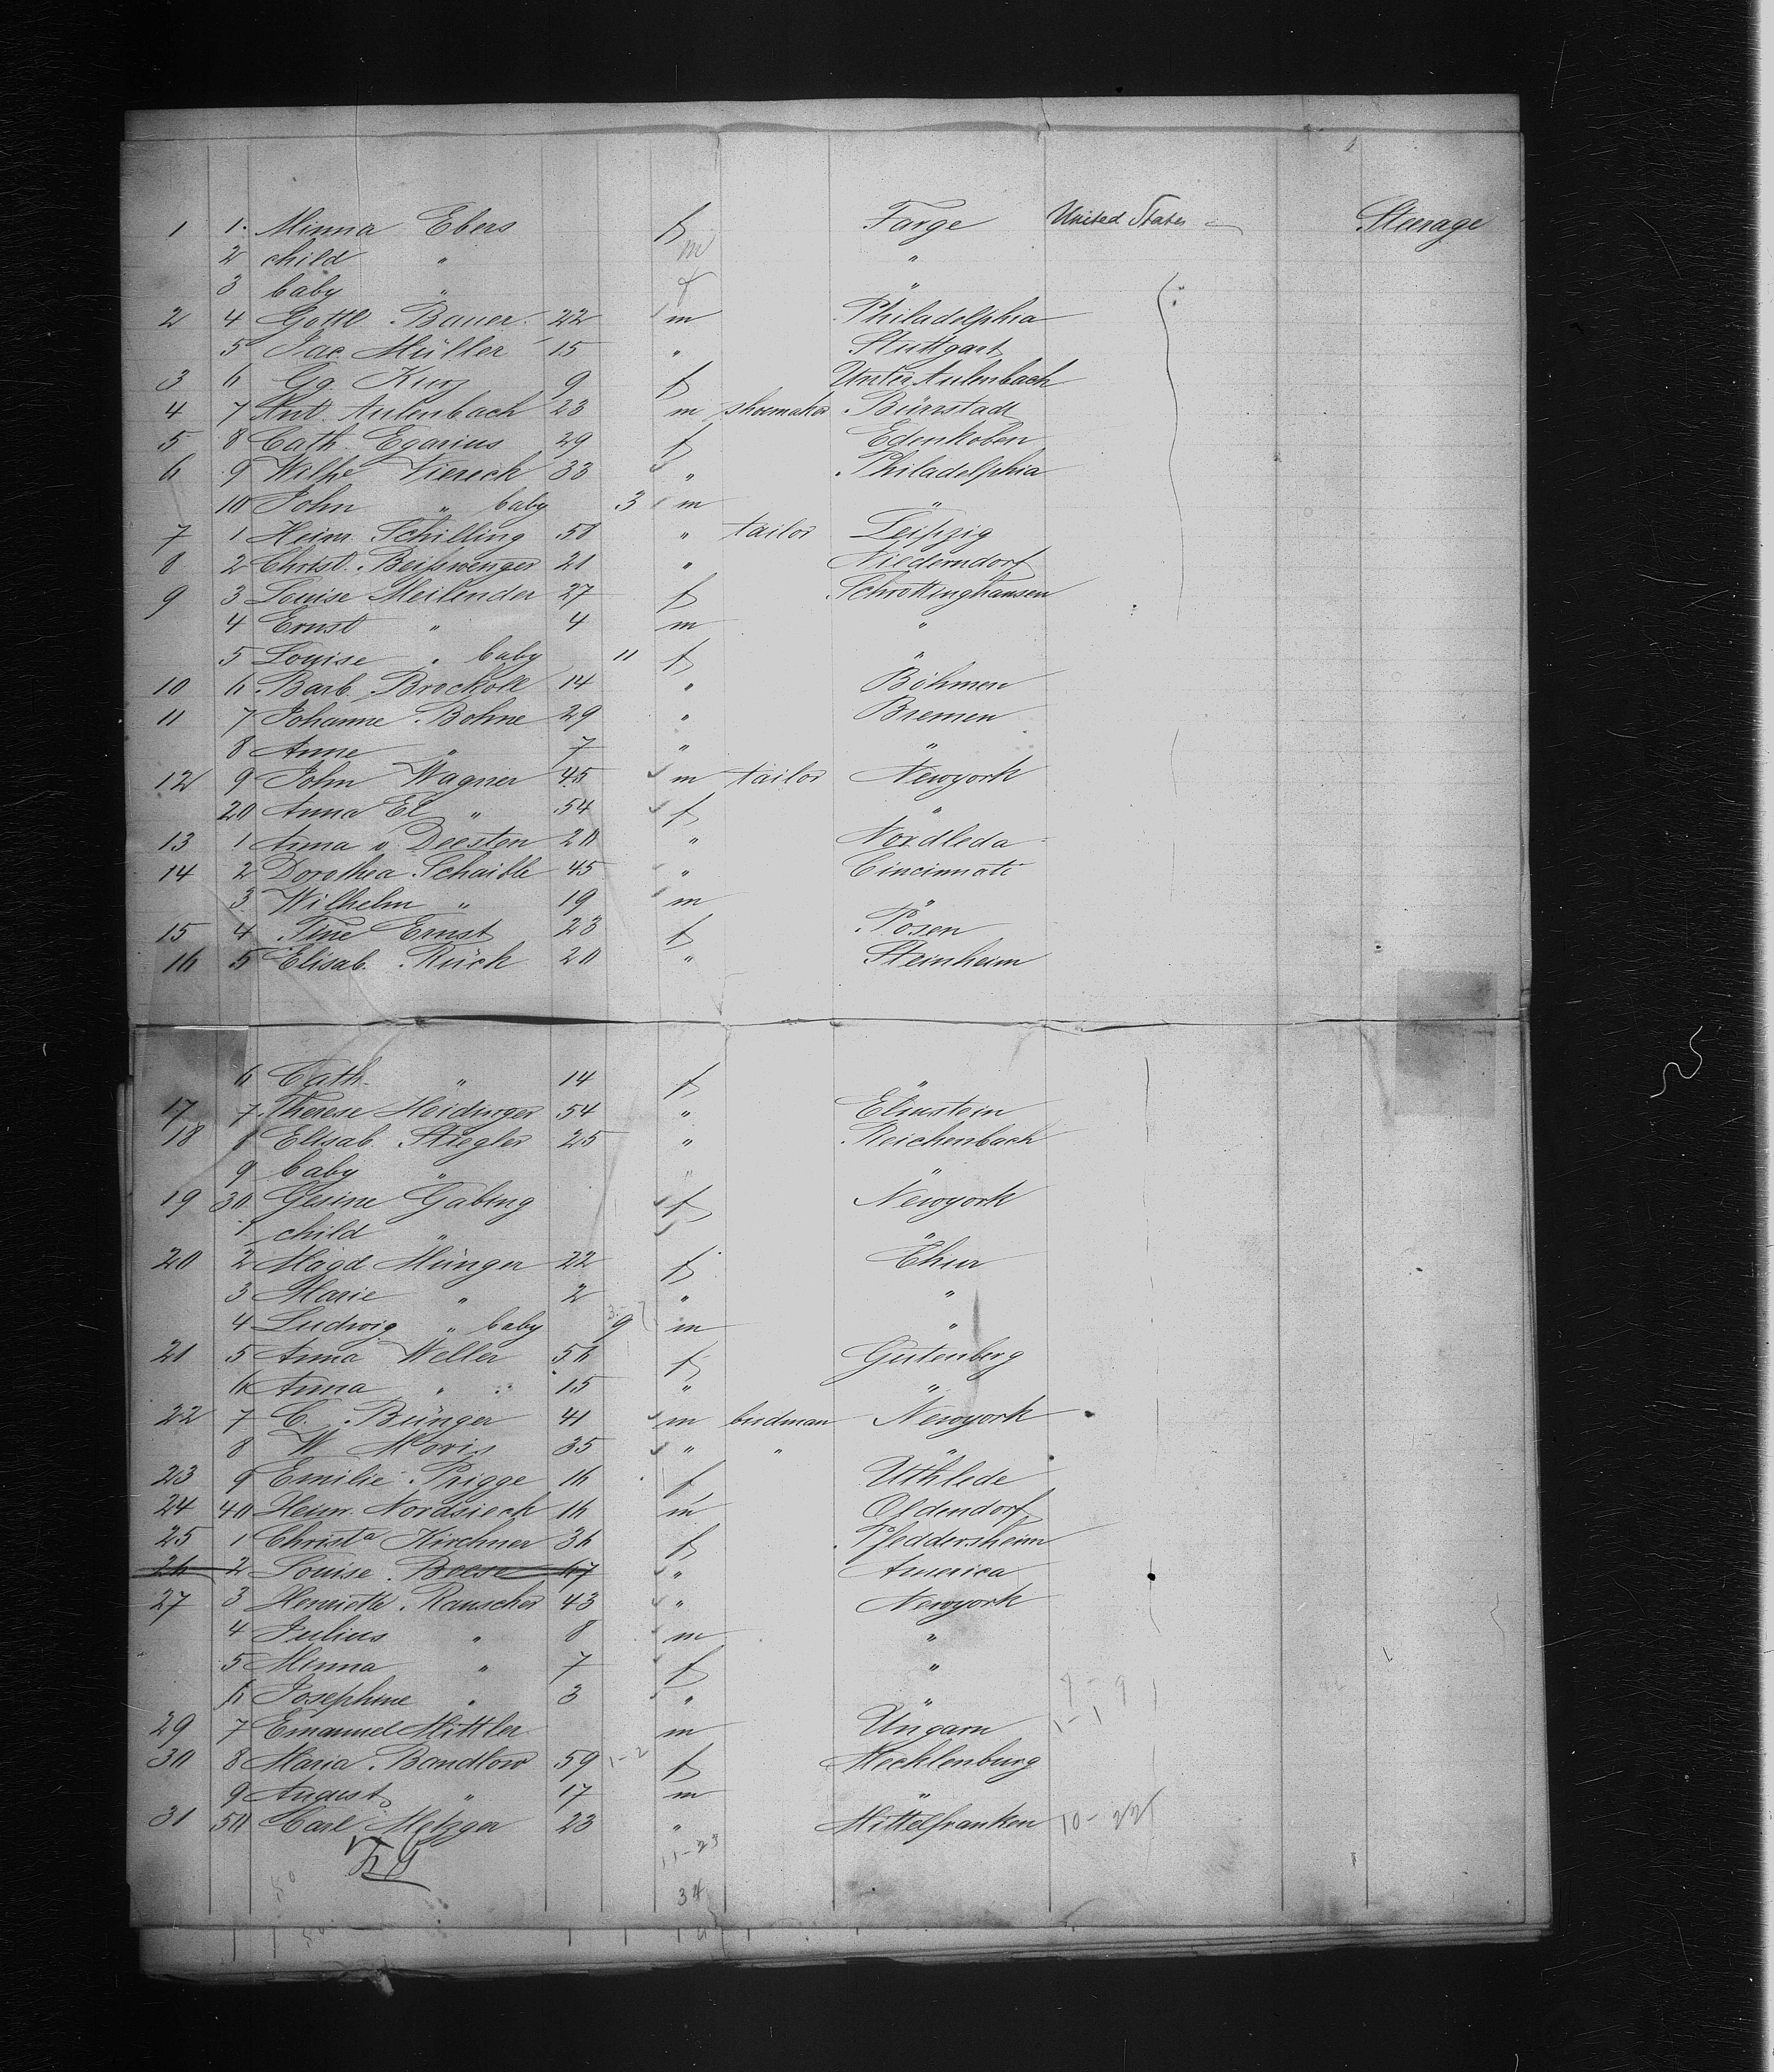 1 1. Minna Ebers f Farge United States Steerage
2 child " m "
3 baby " f "
2 4 Gottl. Bauer 22 m Philadelphia
5 Jac. Müller 15 " Stuttgart
3 6 Gg. Kurz 9 f Unter Aulenbach
4 7 Ant. Aulenbach 23 m shoemaker Bürrstadt
5 8 Cath. Egarius 29 f Edenkoben
6 9 Wilhe Viereck 33 " Philadelphia
10 John " baby 3 m "
7 1 Heinr. Schilling 58 " tailor Leipzig
8 2 Christ. Beißwenger 21 " Niederndorf
9 3 Louise Meilender 27 f Schröttinghausen
4 Ernst " 4 m "
5 Louise " baby 11 f "
10 6 Barb. Brockoll 14 " Böhmen
11 7 Johanne Bohne 29 " Bremen
8 Anne " 7 " "
12 9 John Wagner 45 m tailor Newyork
20 Anna El " 54 f "
13 1 Anna v Deesten 20 " Nordleda
14 2 Dorothea Schaible 45 " Cincinnati
3 Wilhelm " 19 m "
15 4 Tine Ernst 23 f Posen
16 5 Elisab. Rück 20 " Steinheim
6 Cath. " 14 f "
17 7 Therese Heidinger 54 " Elmstein
18 8 Elisab. Stiegler 25 " Reichenbach
9 baby " " "
19 30 Gesine Gabing f Newyork
1 child " "
20 2 Magd. Münger 22 f Chur
3 Marie " 2 " "
4 Ludwig " baby 9 m "
21 5 Anna Weller 56 f Gutenberg
6 Anna " 15 " "
22 7 C. Bünger 41 m birdman Newyork
8 W Moris 35 " " "
23 9 Emilie Prigge 16 f Uthlede
24 40 Heinr. Nordsieck 16 m Oldendorf
25 1 Christa Kirchner 36 f Pfeddersheim
26 2 Louise Boese 67 " America
27 3 Henriette Rauscher 43 " Newyork
4 Julius " 8 m "
5 Minna " 7 f "
6 Josephine " 3 " "
29 7 Emanuel Mittler m Ungarn 1-1
30 8 Maria Bandlow 59 1-2 f Mecklenburg
9 August " 17 m "
31 50 Carl Metzger 23 " Mittelfranken 10-22
11-23
34